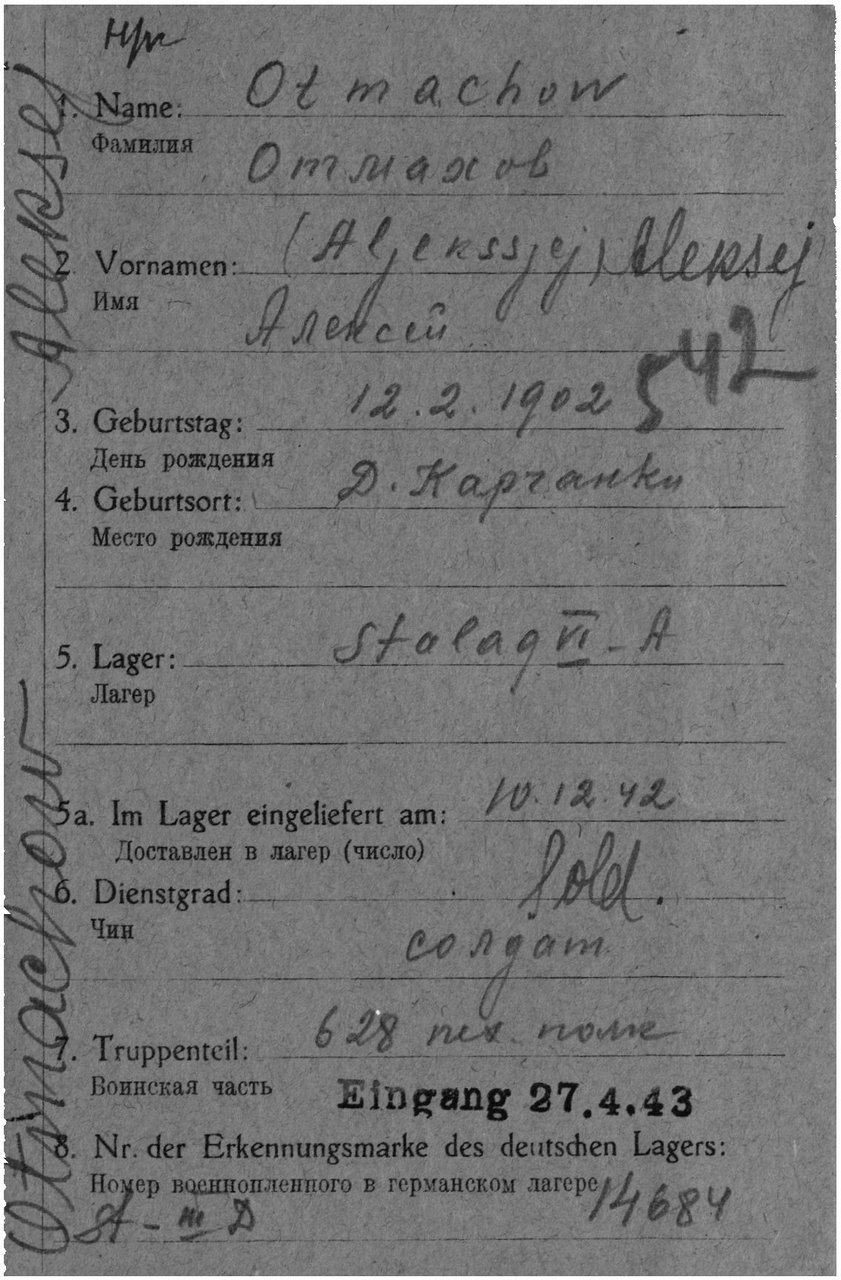 1. Name: Otmachow
Фамилия Отмахов
2. Vornamen: (Aljekssjej) Aleksej
Имя Алексей
542
3. Geburtstag: 12.2.1902
День рождения
4. Geburtsort: Д. Карчанки
Место рождения
5. Lager: Stalag VI-A
Лагер
5a. Im Lager eingeliefert am: 10.12.42
Доставлен в лагер (число)
6. Dienstgrad: Sold.
Чин солдат
7. Truppenteil: 628 пех. полк
Воинская часть
Eingang 27.4.43
8. Nr. der Erkennungsmarke des deutschen Lagers:
Номер военнопленного в германском лагере 14684
A - III D
Otmachow Aleksej